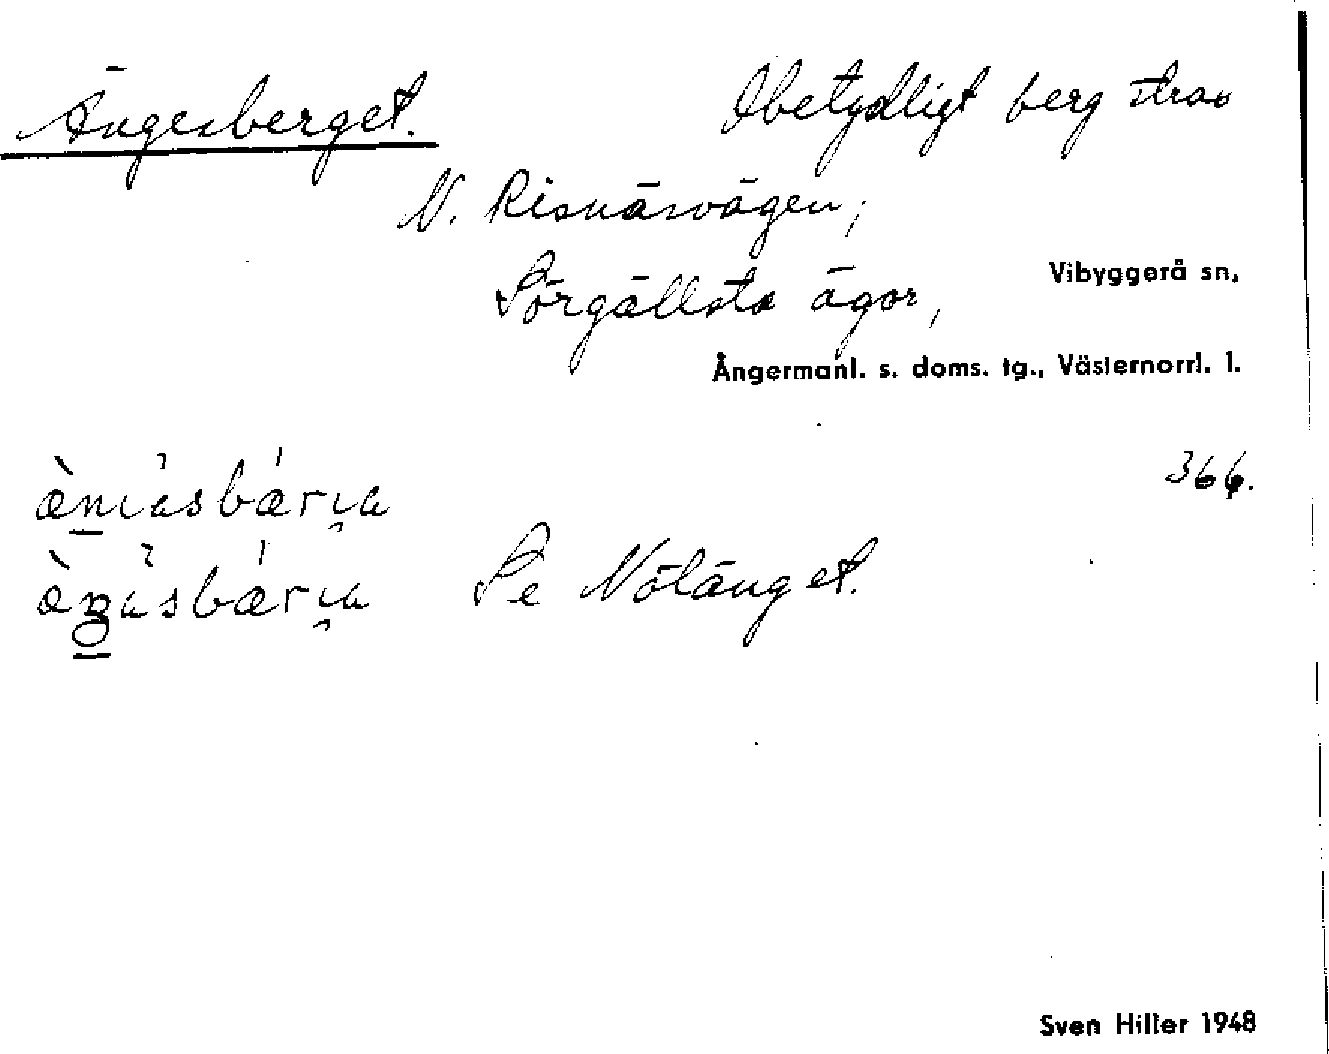 Ängesberget. Obetydligt berg strax
N. Risnäsvägen;
Sörgällsta ägor,
Vibyggerå sn.
Ångermanl. s. doms. tg., Västernorrl. l.
366.
Se Nölänget.
Sven Hiller 1948